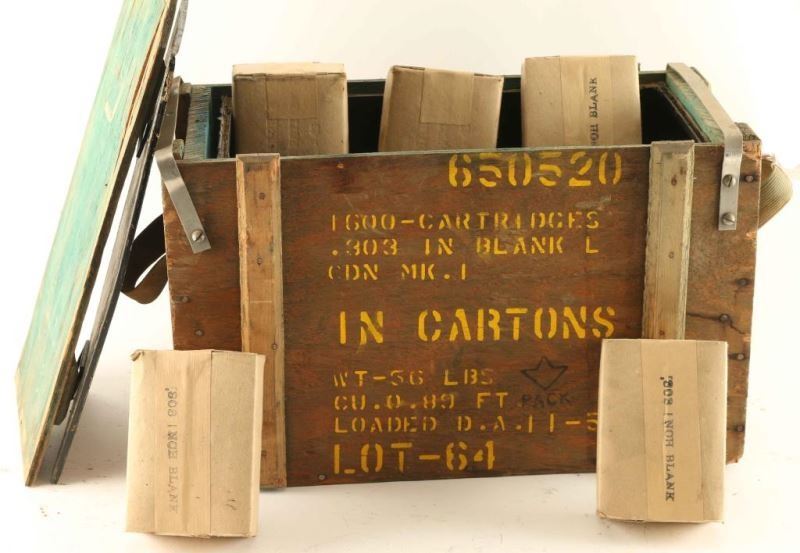 INCH BLANK
650520
1600-CARTRIDGES
.303 IN BLANK L
CDN MK.1
IN CARTONS
WT-56 LBS
CU.0.89 FT
PACK
LOADED D.A.11-5
LOT-64
.303 INCH BLANK
.303 INCH BLANK